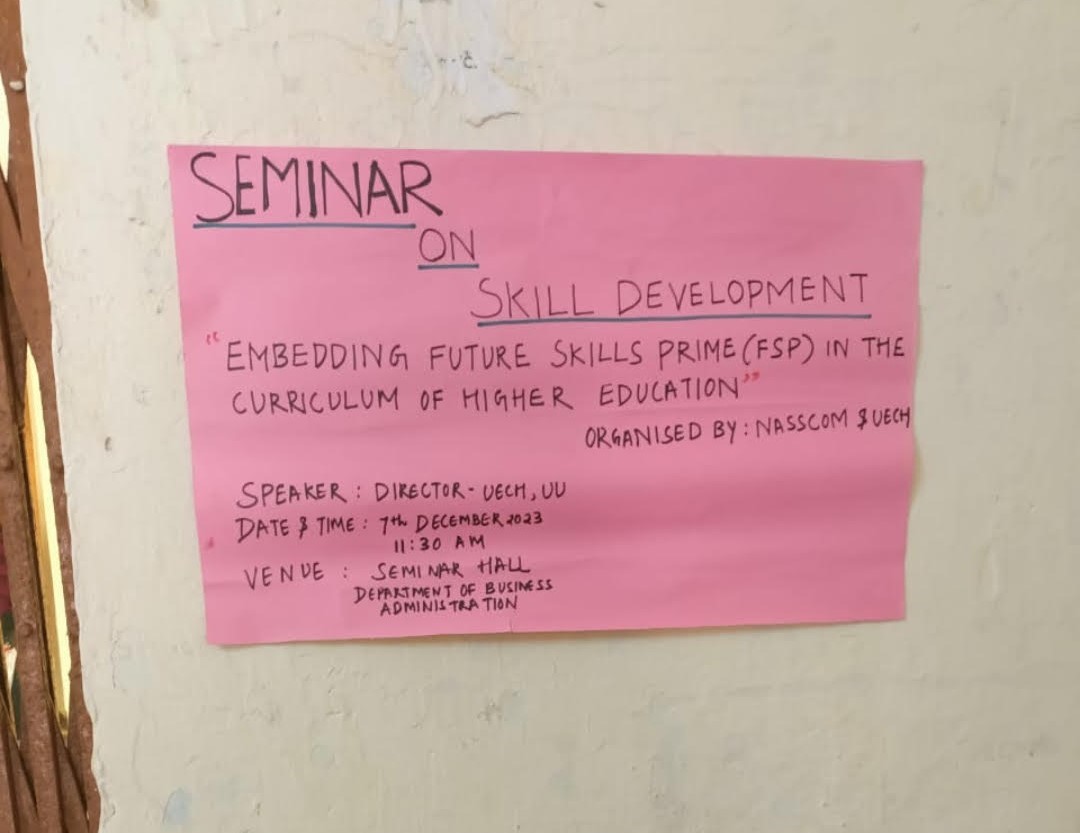 SEMINAR
ON
SKILL DEVELOPMENT
“EMBEDDING FUTURE SKILLS PRIME (FSP) IN THE
CURRICULUM OF HIGHER EDUCATION”
ORGANISED BY: NASSCOM & UECH
SPEAKER : DIRECTOR - UECH, UU
DATE & TIME : 7th DECEMBER 2023
11:30 AM
VENUE : SEMINAR HALL
DEPARTMENT OF BUSINESS
ADMINISTRATION